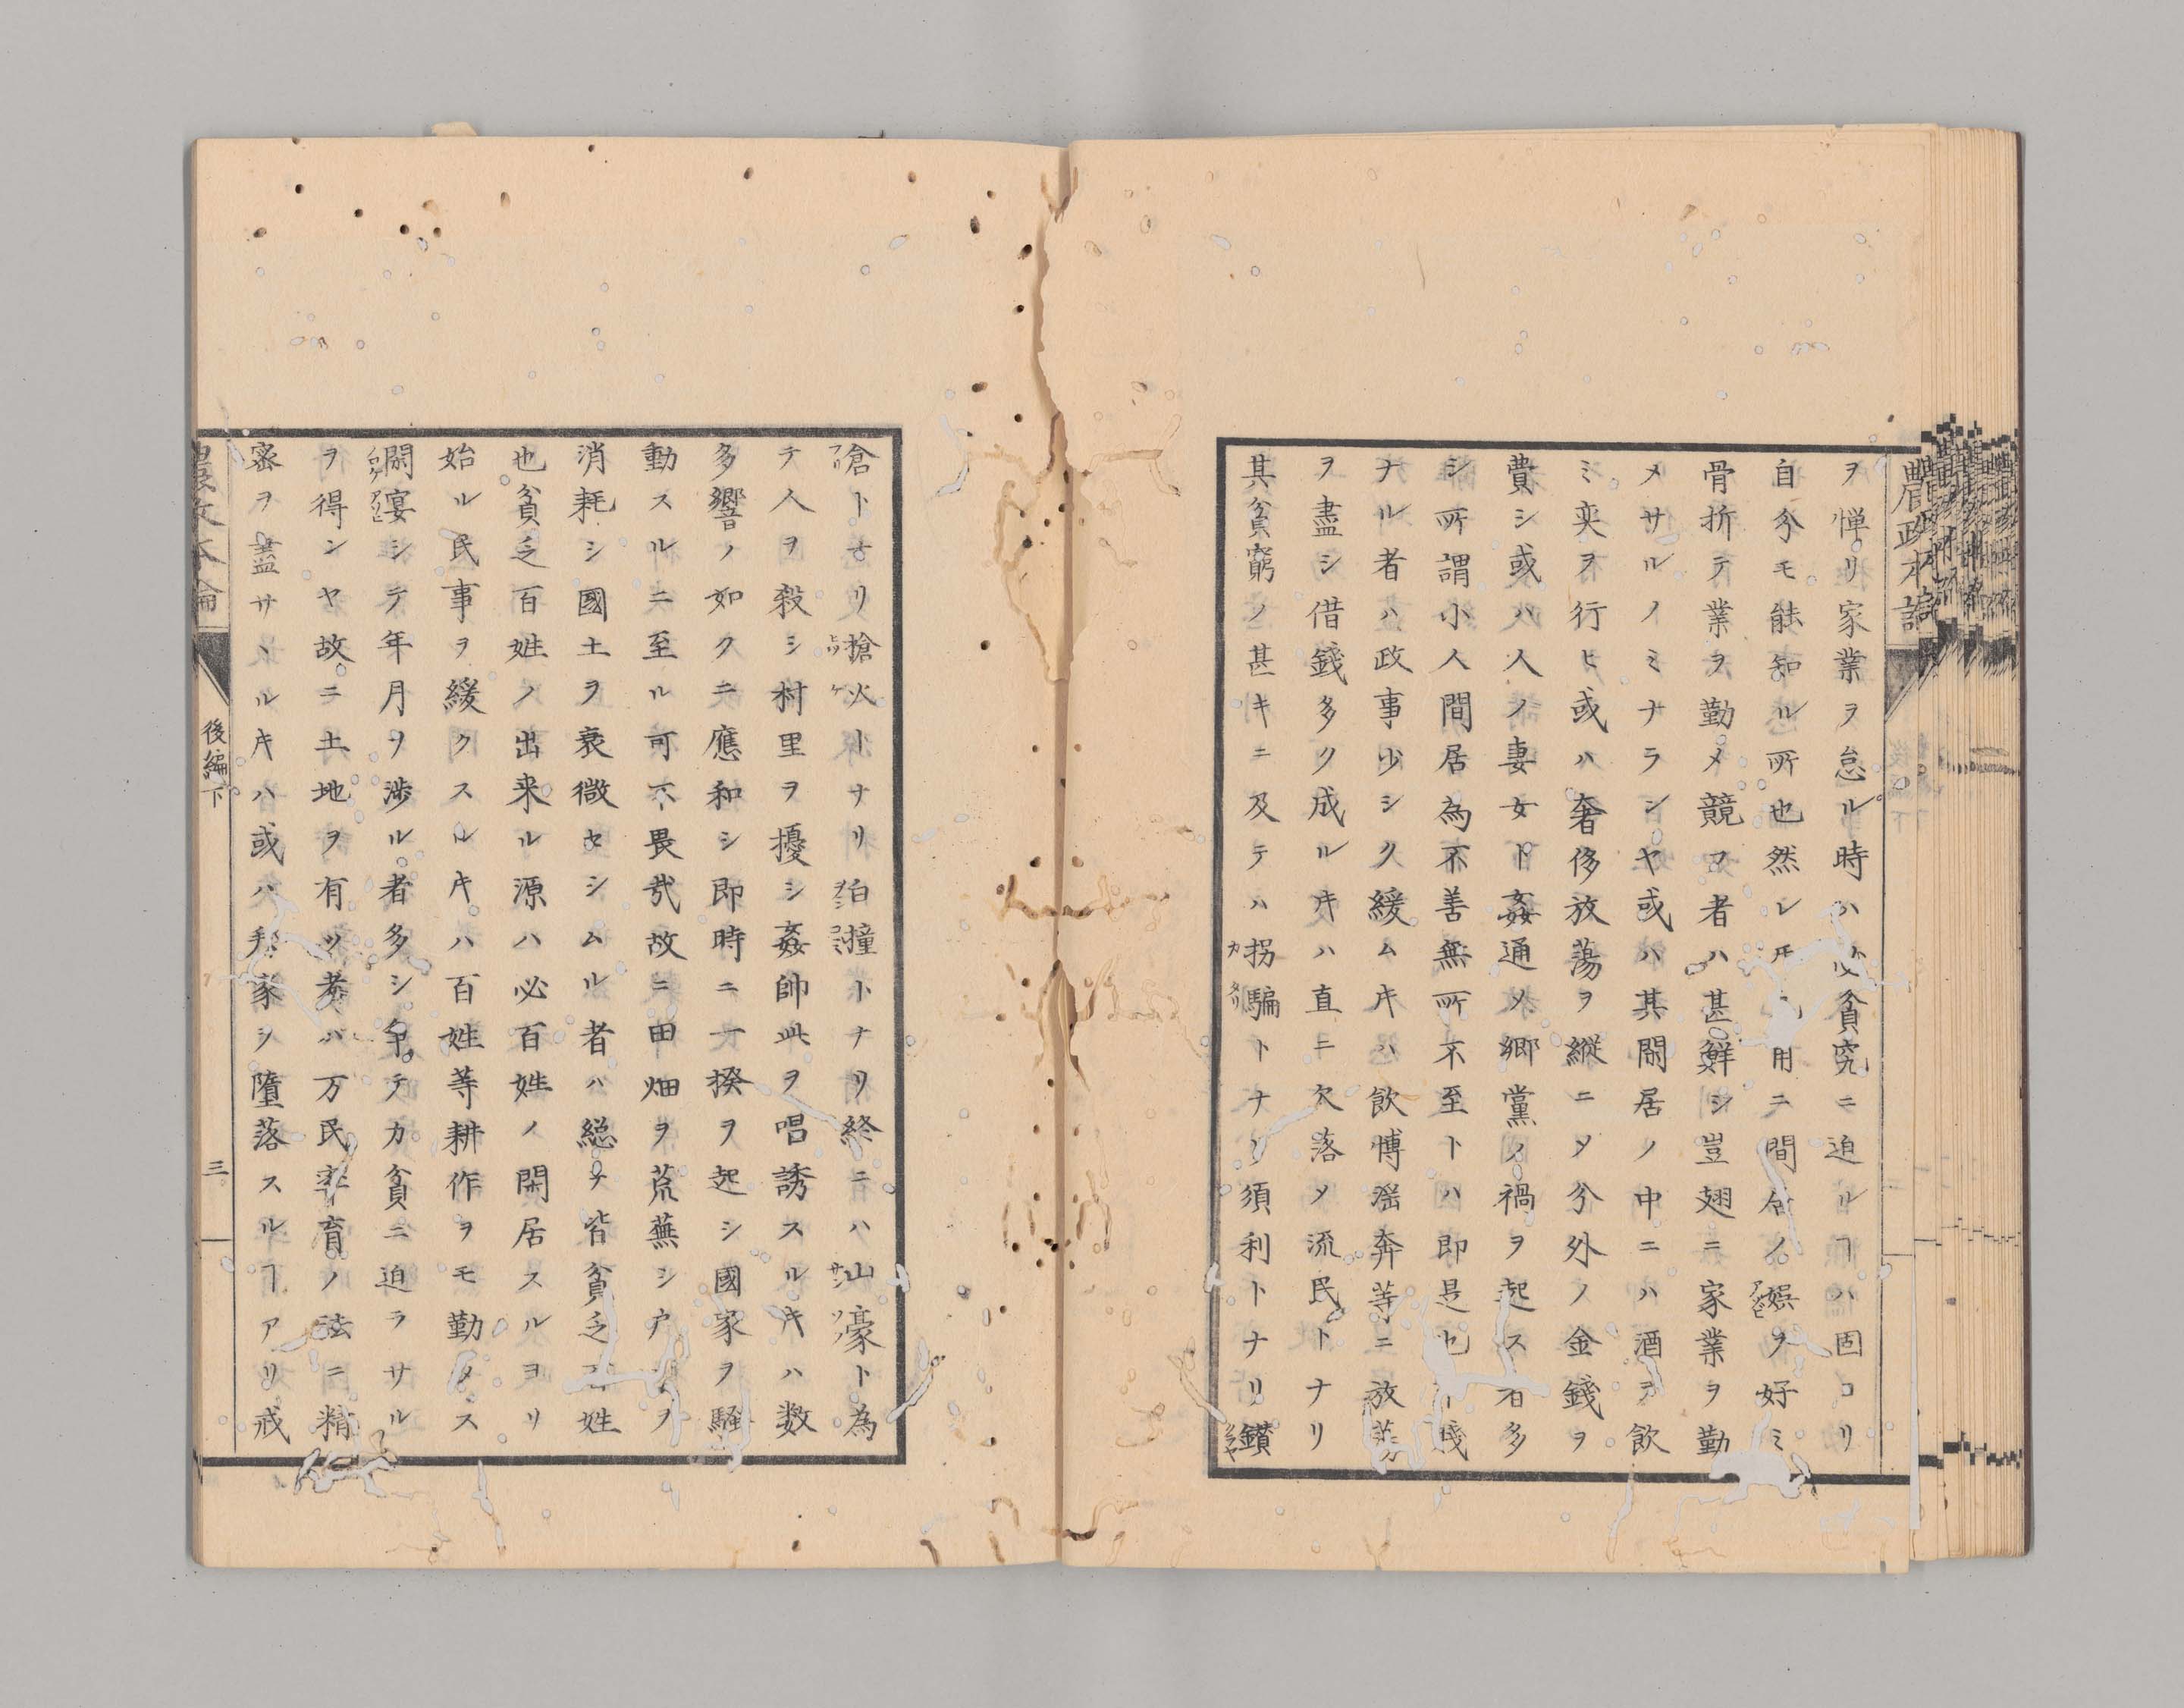 農政本論
ヲ憚リ家業ヲ怠ル時ハ必貧究ニ迫ルヿハ固コリ
自分モ能知ル所也然レ𪜈 用ニ間 ノ娯ヲ好ミ
アソビ
骨折テ業ヲ勤メ競フ者ハ甚鮮シ豈翅ニ家業ヲ勤
メサルノミナラシヤ或ハ其閑居ノ中ニハ酒ヲ飲
ミ奕ヲ行ヒ或ハ奢侈放蕩ヲ縦ニメ分外ノ金錢ヲ
費シ或ハ人ノ妻女ト姦通メ郷黨ノ禍ヲ起ス者多
シ所謂小人間居為不善無所不至トハ即是也下賤
ナル者ハ政事少シク緩ムキハ飲博淫奔等ニ放蕩
ヲ盡シ借錢多ク成ルキハ直ニ欠落メ流民トナリ
其貧窮ノ甚キニ及テハ拐騙トナリ須利トナリ鑚
カタリ
倉トナリ搶火トナリ狛撞トナリ終ニハ山濠ト為
テ人ヲ殺シ村里ヲ擾シ姦帥此ヲ唱誘スルキハ数
多響ノ如クニ應和シ即時ニ一揆ヲ起シ國家ヲ騒
動スルニ至ル可不畏哉故ニ田畑ヲ荒蕪シ戸 ヲ
消耗シ國土ヲ衰微セシムル者ハ總テ皆貧乏百姓
也貧乏百姓ノ出来ル源ハ必百姓ノ閑居スルヨリ
始ル民事ヲ緩クスルキハ百姓等耕作ヲモ勤メス
閑宴シテ年月ヲ渉ル者多シ争テカ貧ニ迫ラサル
ヲ得ンヤ故ニ土地ヲ有ツ者ハ万民 育ノ法ニ精
密ヲ盡サヽルキハ或ハ 家シ墮落スルヿアリ戒
農政本論
後編下
三